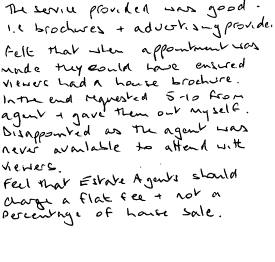 The service provided was good.
i.e brochures + advertising provided.
Felt that when appointment was
made they could have ensured
viewers had a house brochure.
In the end requested 5-10 from
agent + gave them out myself.
Disappointed as the agent was
never available to attend with
viewers.
Feel that Estate Agents should
charge a flat fee + not a
percentage of house sale.